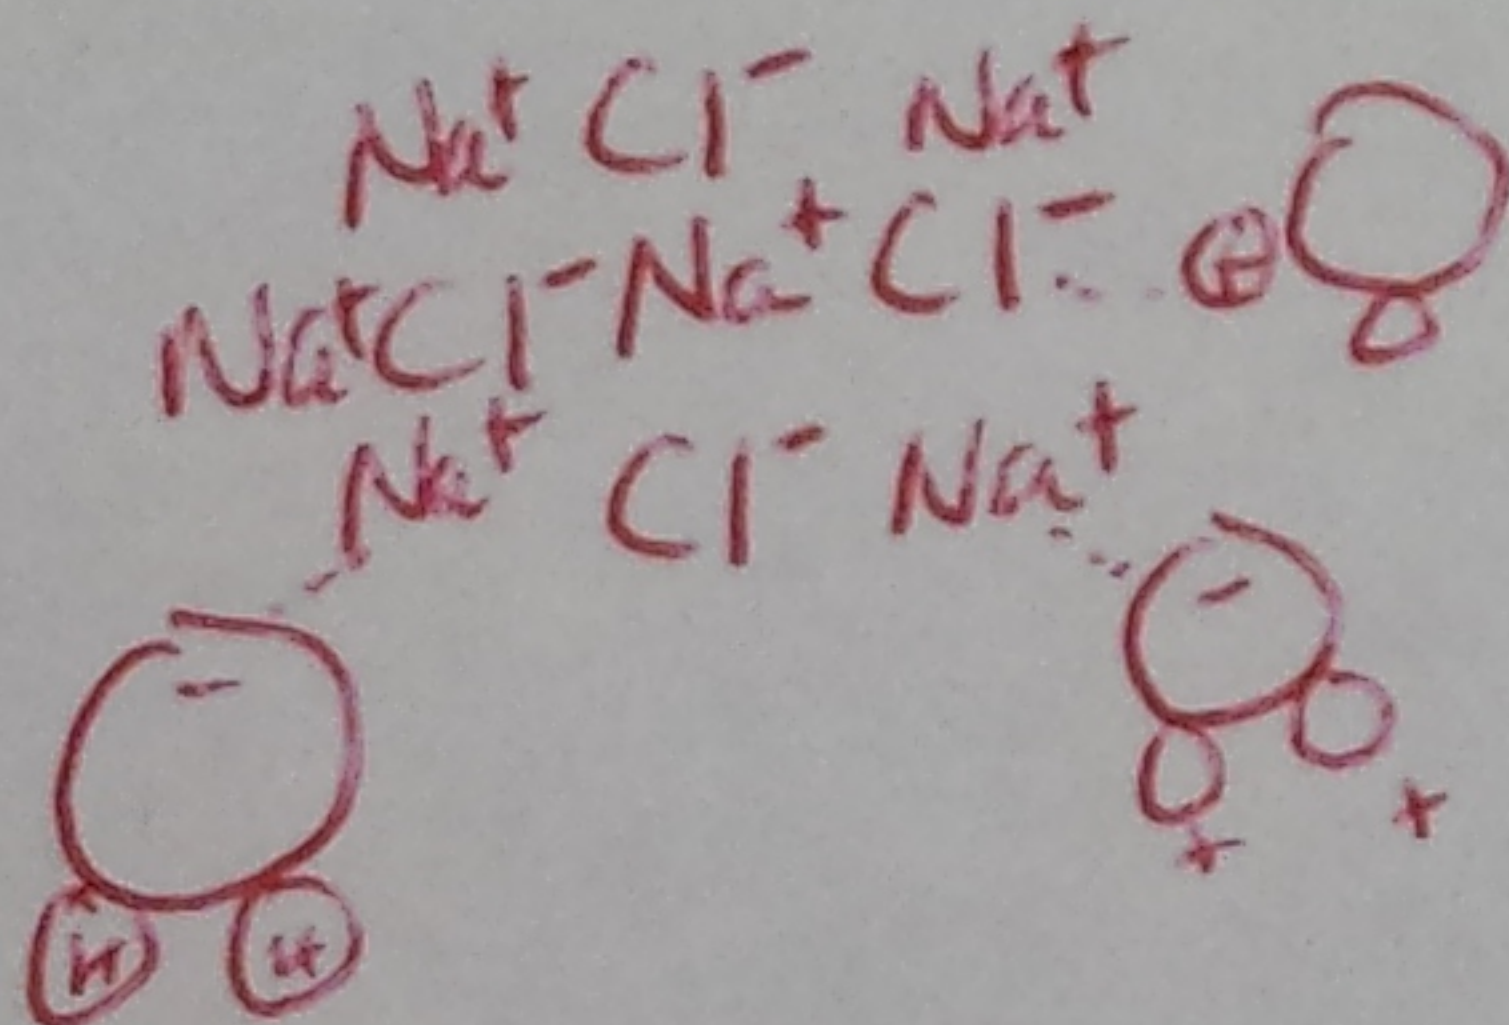 Na⁺ Cl⁻ Na⁺
Na⁺ Cl⁻ Na⁺ Cl⁻ +
Na⁺ Cl⁻ Na⁺
-
-
+ +
H H